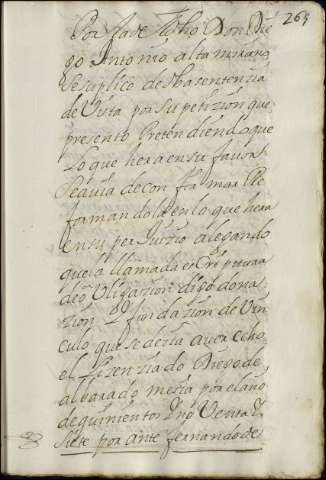 265
Por parte del dho Don Die
go Antonio altamirano
se suplico de dha sentencia
de Vista por su petizion que
presento Pretendiendo que
lo que hera en su favor
se avia de confirmar Re
formandola en lo que hera
en su perjuizio alegando
que la llamada escriptura
de oVligazion digo dona
zion y fundazion de Vin
culo que se dezia aver echo
el Lizenziado Diego de
albarado mesia por el año
de quinientos y no Venta y
siete por ante fernando de